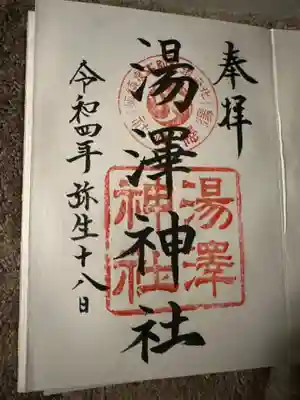 奉拝
湯澤神社
湯澤
神社
令和四年弥生十八日